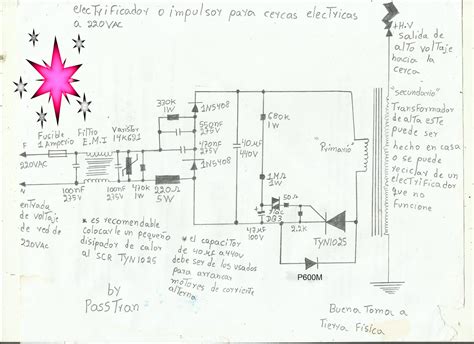 electrificador o impulsor para cercas electricas
a 220VAC
+H.V
Salida de
alto voltaje
hacia la
cerca
"secundario"
Transformador
de alta este
puede ser
hecho en casa
o se puede
reciclar de un
electrificador
que no
funcione
Fusible
1 Amperio
Filtro
E.M.I
Varistor
14K691
330K
1W
1N5408
550nF
275V
470nF
275V
1N5408
40µF
440V
680K
1W
"Primario"
1MΩ
1W
F
220VAC
N
100nF
275V
100nF
275V
470K
1W
220Ω
5W
50Ω
diac
DB3
2.2K
47µF
100V
TYN1025
P600M
entrada
de voltaje
de red de
220VAC
* es recomendable
colocarle un pequeño
disipador de calor
al SCR TYN1025
* el capacitor
de 40µF a 440v
debe ser de los usados
para arrancar
motores de corriente
alterna
by
PossTran
Buena Toma a
Tierra Física